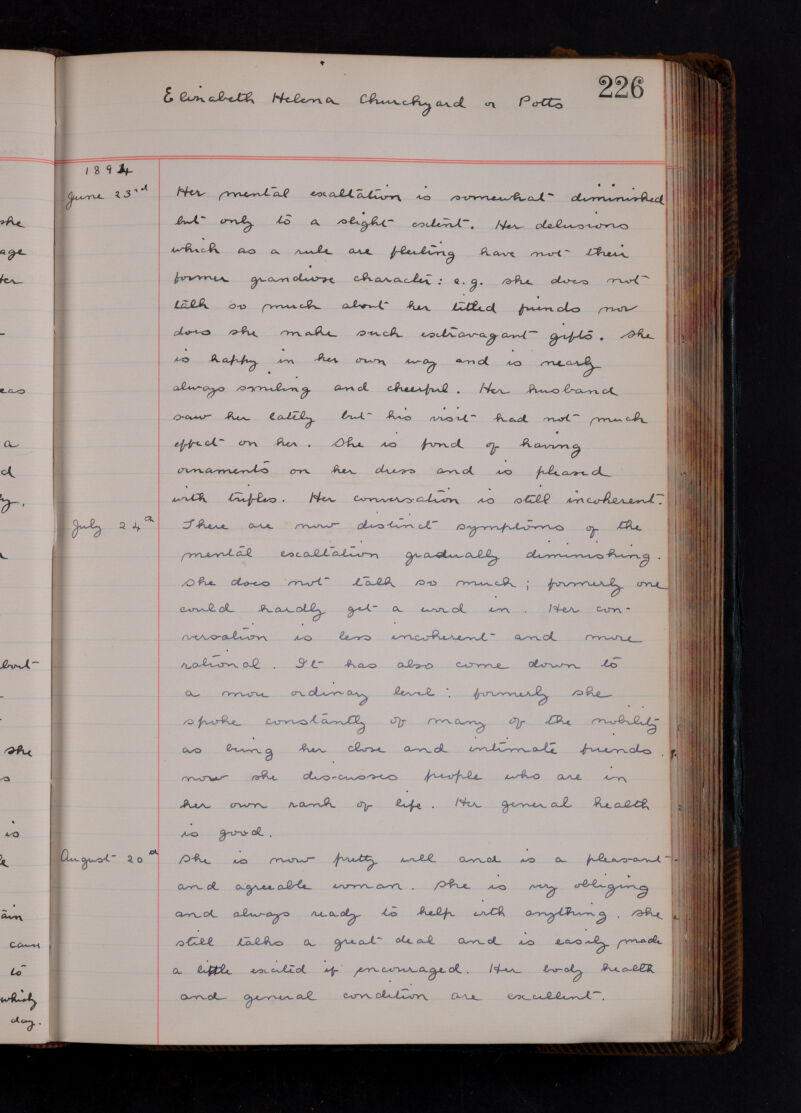 226
Elizabeth Helena Churchyard or Potts
1894
June 23rd Her mental exaltation is somewhat diminished
but only to a slight extent. Her delusions
which as a rule are fleeting have not their
former grandiose character: e.g. she does not
talk so much about her titled friends nor
does she make such extravagant gifts. She
is happy in her own way and is nearly
always smiling and cheerful. Her husband
saw her lately but his visit had not much
effect on her. She is fond of having
ornaments on her dress and is pleased
with trifles. Her conversation is still incoherent.
July 24th There are now distinct symptoms of the
mental exaltation gradually diminishing.
She does not talk so much; formerly one
could hardly get a word in. Her con-
versation is less incoherent and more
rational. It has also come down to
a more ordinary level: formerly she
spoke constantly of many of the nobility
as being her close and intimate friends.
now she discusses people who are in
her own rank of life. Her general health
is good.
August 20th She is now pretty well and is a pleasant
and agreeable woman. She is very obliging
and always ready to help with anything. She
still talks a great deal and is easily made
a little excited if encouraged. Her body health
and general condition are excellent.
she
age
a
d
but
she
is
cause
to
which
day.